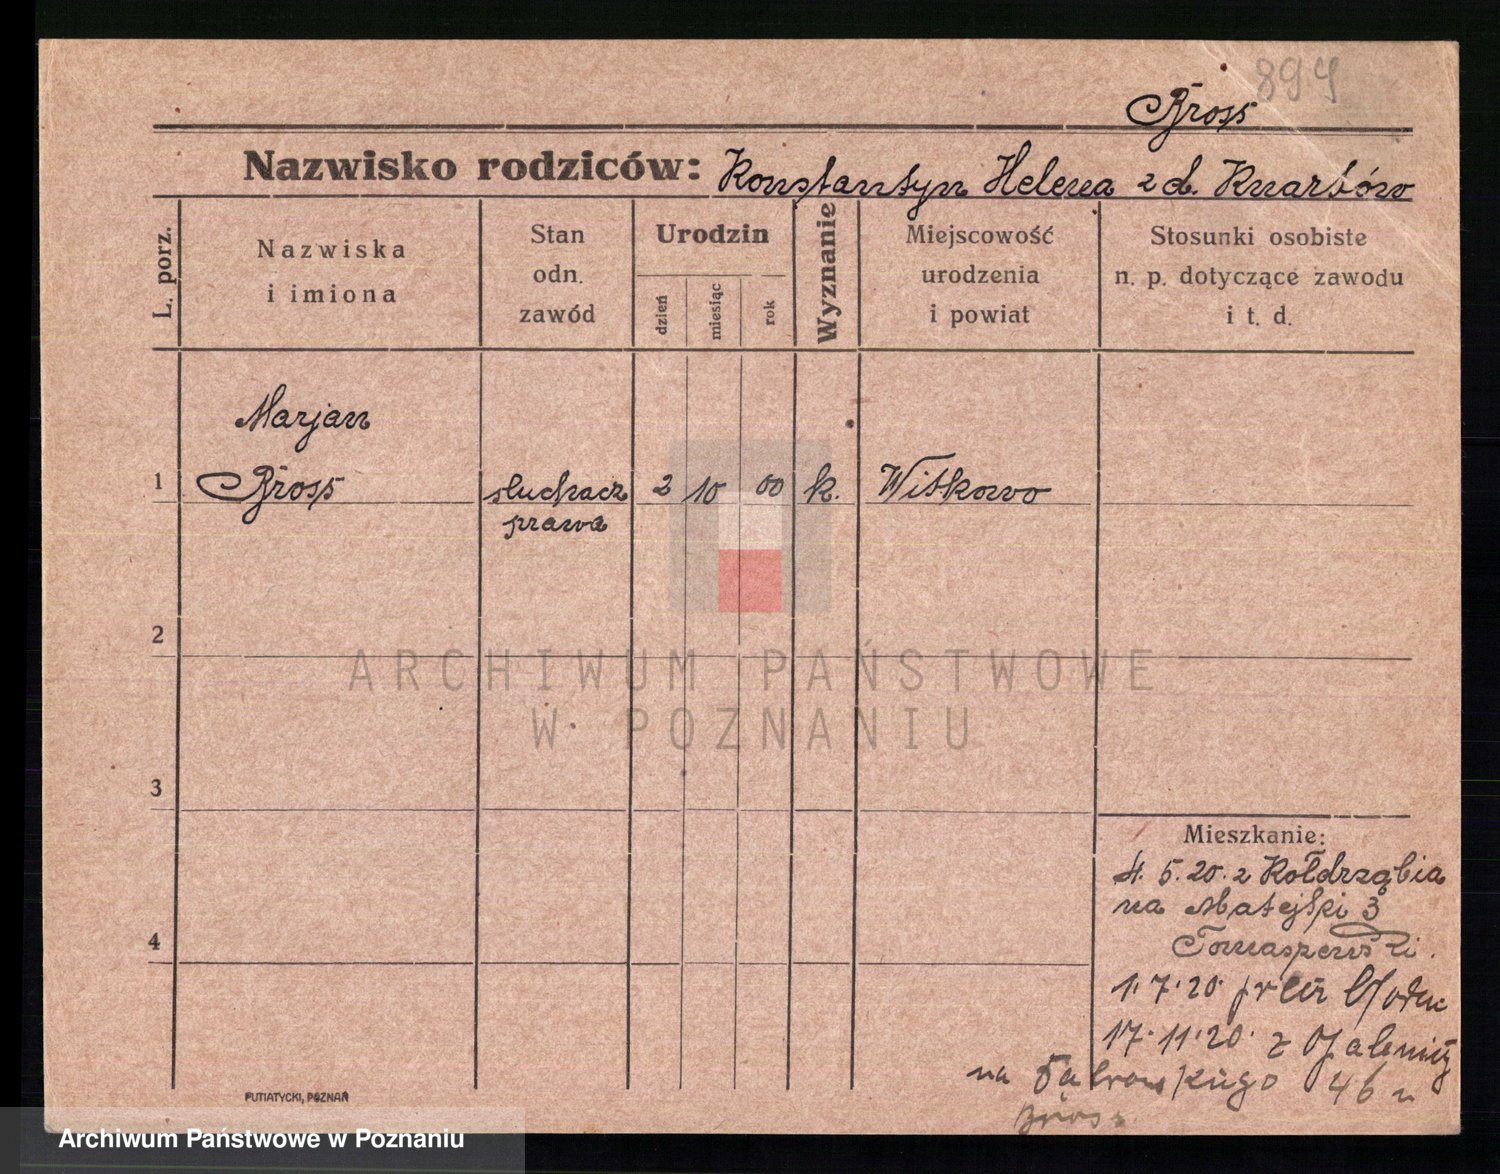 897
Bross
Nazwisko rodziców: Konstantyn Helena z d. Knastów
L. porz.
Nazwiska
i imiona
Stan
odn.
zawód
Urodzin
dzień
miesiąc
rok
Wyznanie
Miejscowość
urodzenia
i powiat
Stosunki osobiste
n. p. dotyczące zawodu
i t. d.
Marjan
1 Bross słuchacz 2 10 00 k. Witkowo
prawa
2
ARCHIWUM PAŃSTWOWE
W POZNANIU
3
Mieszkanie:
4. 5. 20. z Kołdrząbia
na Matejki 3
4
Tomaszewski.
1. 7. 20
17. 11. 20. z
na 46
Bross
PUTIATYCKI, POZNAŃ
Archiwum Państwowe w Poznaniu